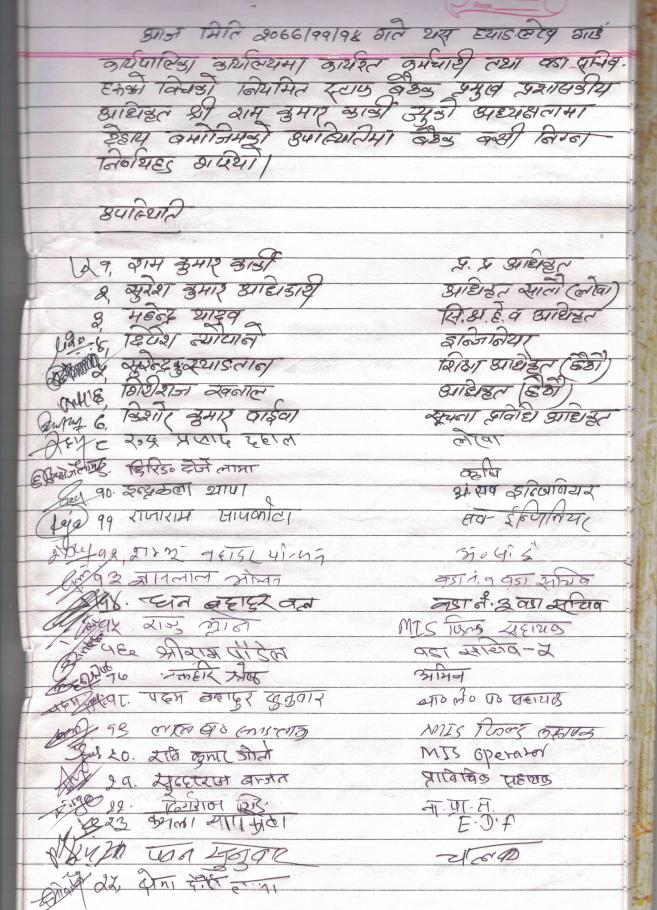 आज मिति २०७७/११/१४ गते यस घ्याङलेख गाउँ
कार्यपालिका कार्यालयमा कार्यरत कर्मचारी तथा वडा सचिव-
हरुको विचको नियमित स्टाफ बैठक प्रमुख प्रशासकीय
अधिकृत श्री राम कुमार कार्की ज्यूको अध्यक्षतामा
देहाय बमोजिमको उपस्थितिमा बैठक बसी निम्न
निर्णयहरु गरियो।
उपस्थिति
१, राम कुमार कार्की प्र. प्र अधिकृत
२ सुरेश कुमार अधिकारी अधिकृत सातौं (लेखा)
३ महेन्द्र यादव सि.अ.हे.व अधिकृत
४ दिपेश न्यौपाने इन्जिनियर
५ सुरेन्द्र कु स्याङतान शिक्षा अधिकृत (छैठौं)
६ गिरीराज खनाल अधिकृत (छैठौं)
७. किशोर कुमार सूचना प्रविधि अधिकृत
८ रुद्र प्रसाद दहाल लेखा
९. छिरिङ दोर्जे लामा कृषि
१०. इन्द्रकला थापा अ. सव इन्जिनियर
११ राजाराम सापकोटा सव-ईन्जिनियर
१२, शम्भु बहादुर
१३ ज्ञानलाल वडा नं. १ वडा सचिव
१४. धन बहादुर वडा नं. ३ वडा सचिव
१५ राजु MIS फिल्ड सहायक
१६. श्रीराम पौडेल वडा सचिव-२
१७ श्रेष्ठ अमिन
१८. पदम बहादुर सुनुवार सहायक
१९ लाल ब० MIS फिल्ड सहायक
२०. रवि कुमार MIS operator
२१. बज्जत प्राविधिक सहायक
२२. ना. प्रा. स.
२३ कमला सापकोटा E.D.F
सुनुवार चालक
२५,